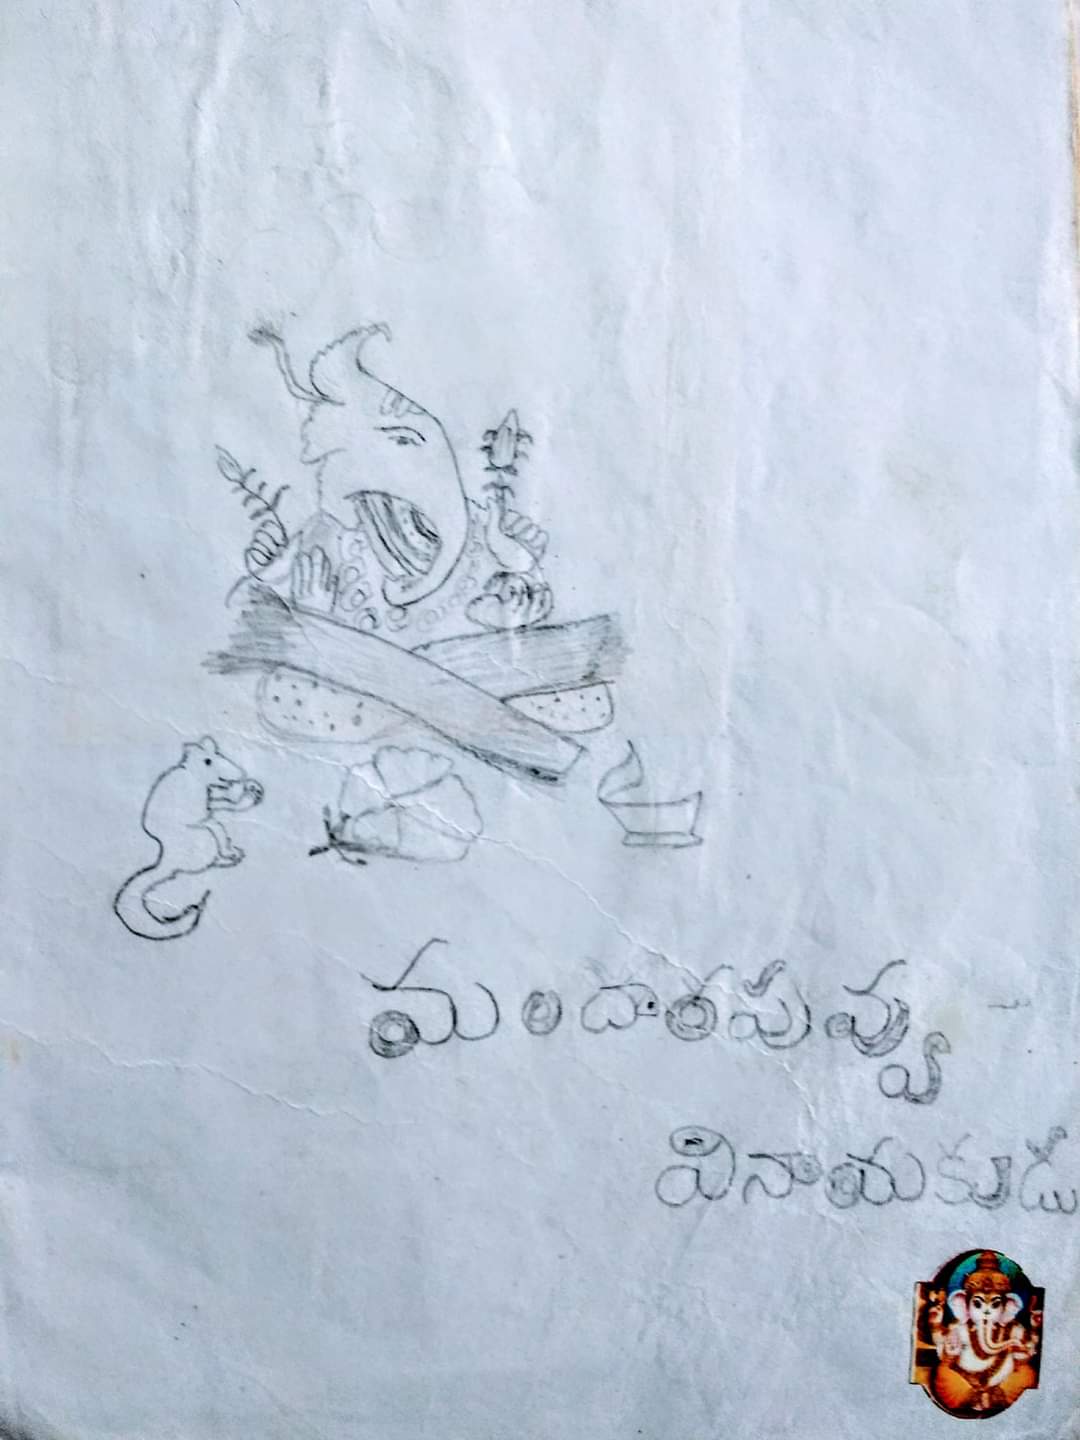 మందారపువ్వు
వినాయకుడు